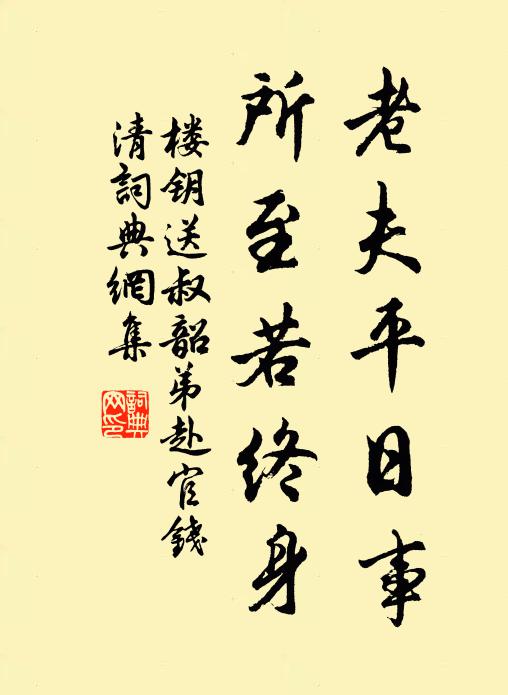 老夫平日事
所至若终身
楼钥送叔韶弟赴官錢
清詞典網集
詞典网印